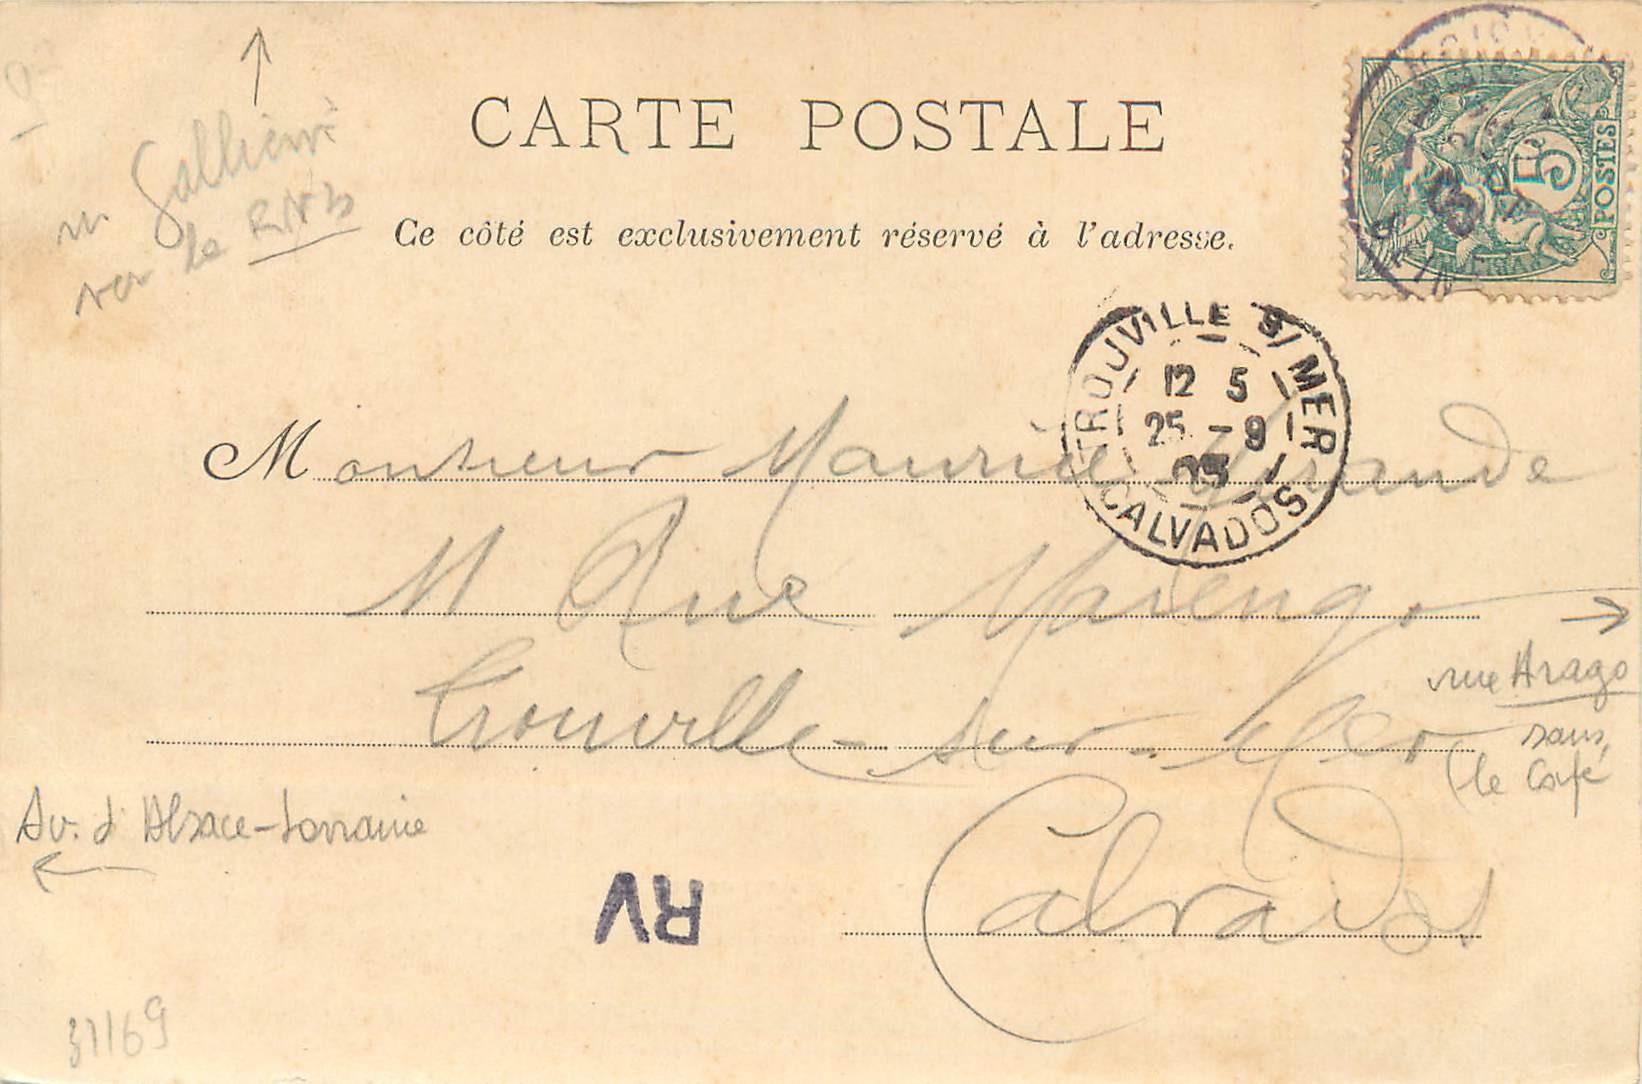 CARTE POSTALE
Ce côté est exclusivement réservé à l'adresse.
Gallieni
ver le
5
POSTES
TROUVILLE S/ MER
12 5
25 -9
05
CALVADOS
Monsieur Maurice
11 Rue Marengo
Trouville-sur-Mer
Calvados
rue Arago
sans
le café
Av. d'Alsace-Lorraine
RV
31169